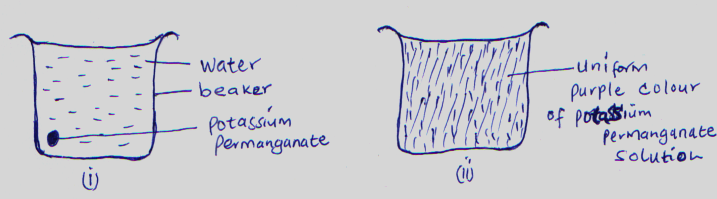 water
beaker
potassium
permanganate
(i)
uniform
purple colour
of potassium
permanganate
solution
(ii)